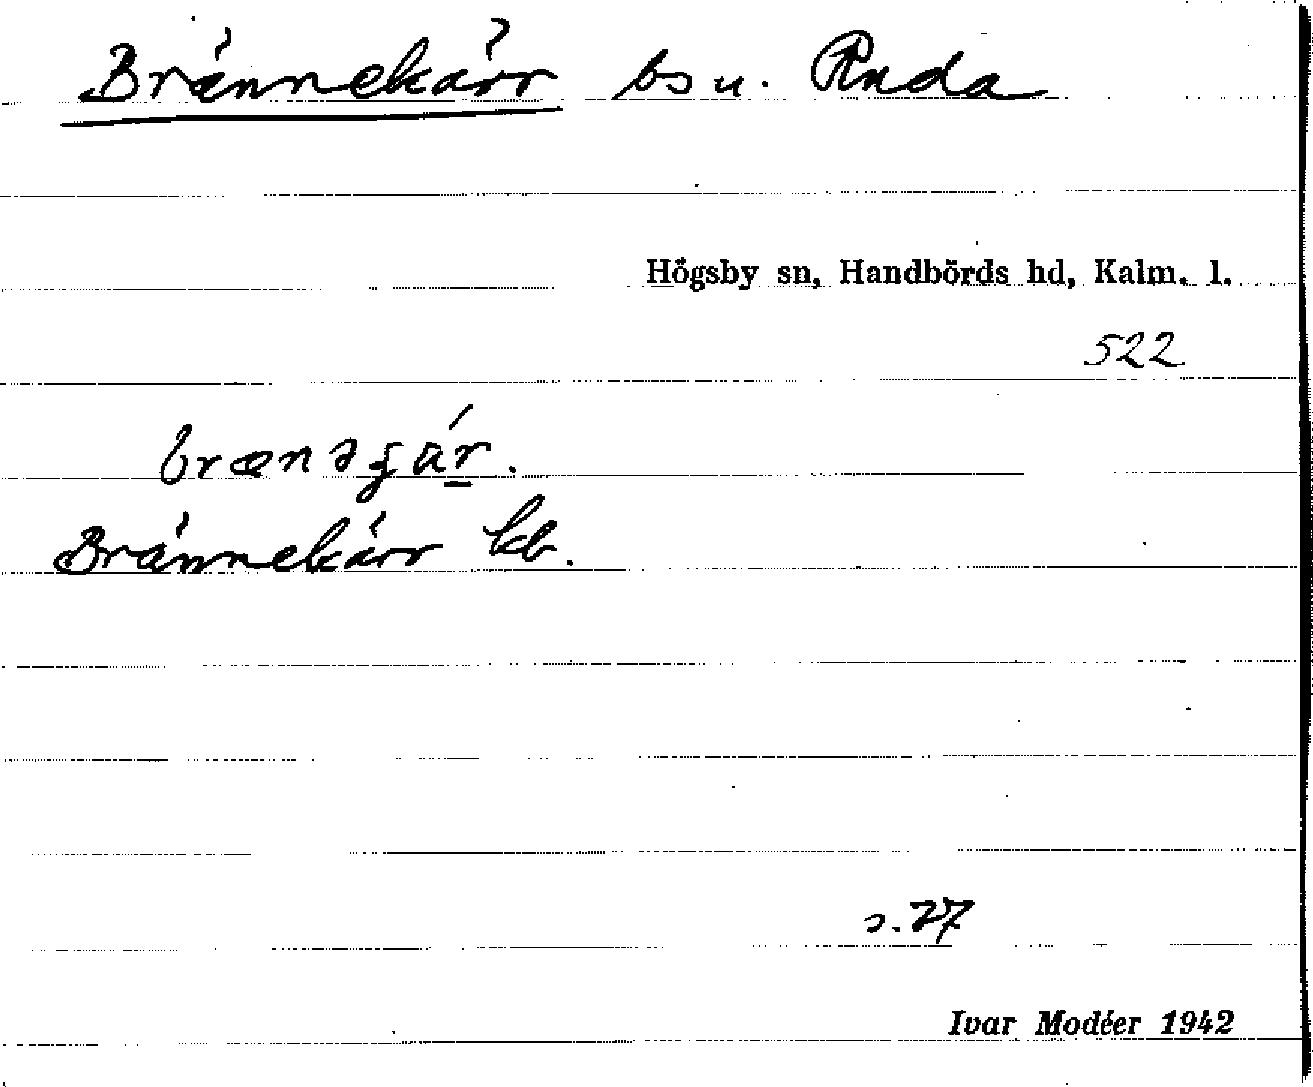 Brännekärr bs u. Ruda
Högsby sn, Handbörds hd, Kalm. l.
522
Brännekärr kb.
s. 27
Ivar Modéer 1942